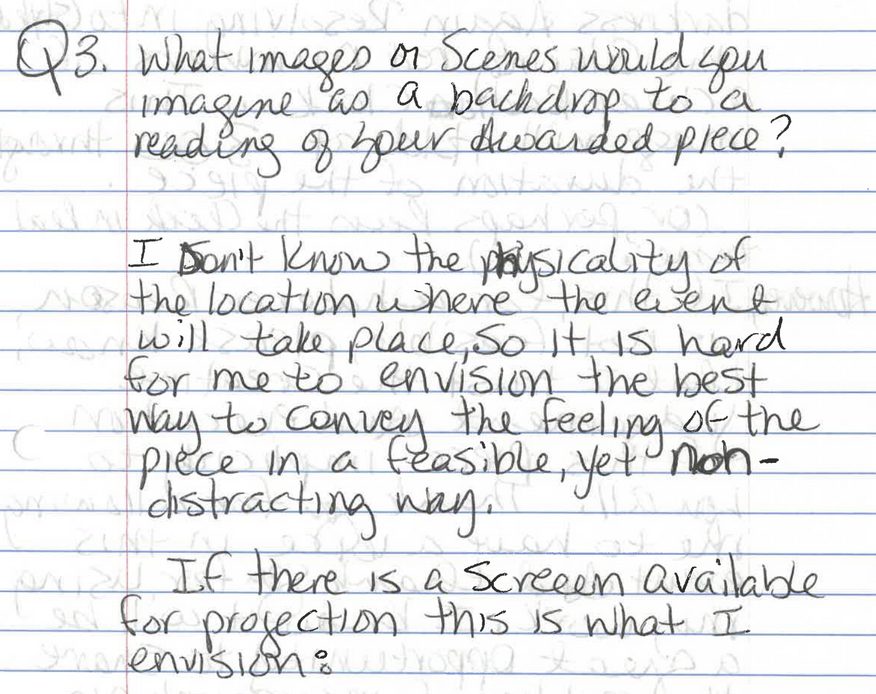 Q3. What images or Scenes would you
imagine as a backdrop to a
reading of your Awarded piece?
I Don't know the physicality of
the location where the event
will take place, so it is hard
for me to envision the best
way to convey the feeling of the
piece in a feasible, yet non-
distracting way.
If there is a Screeen available
for projection this is what I
envision: